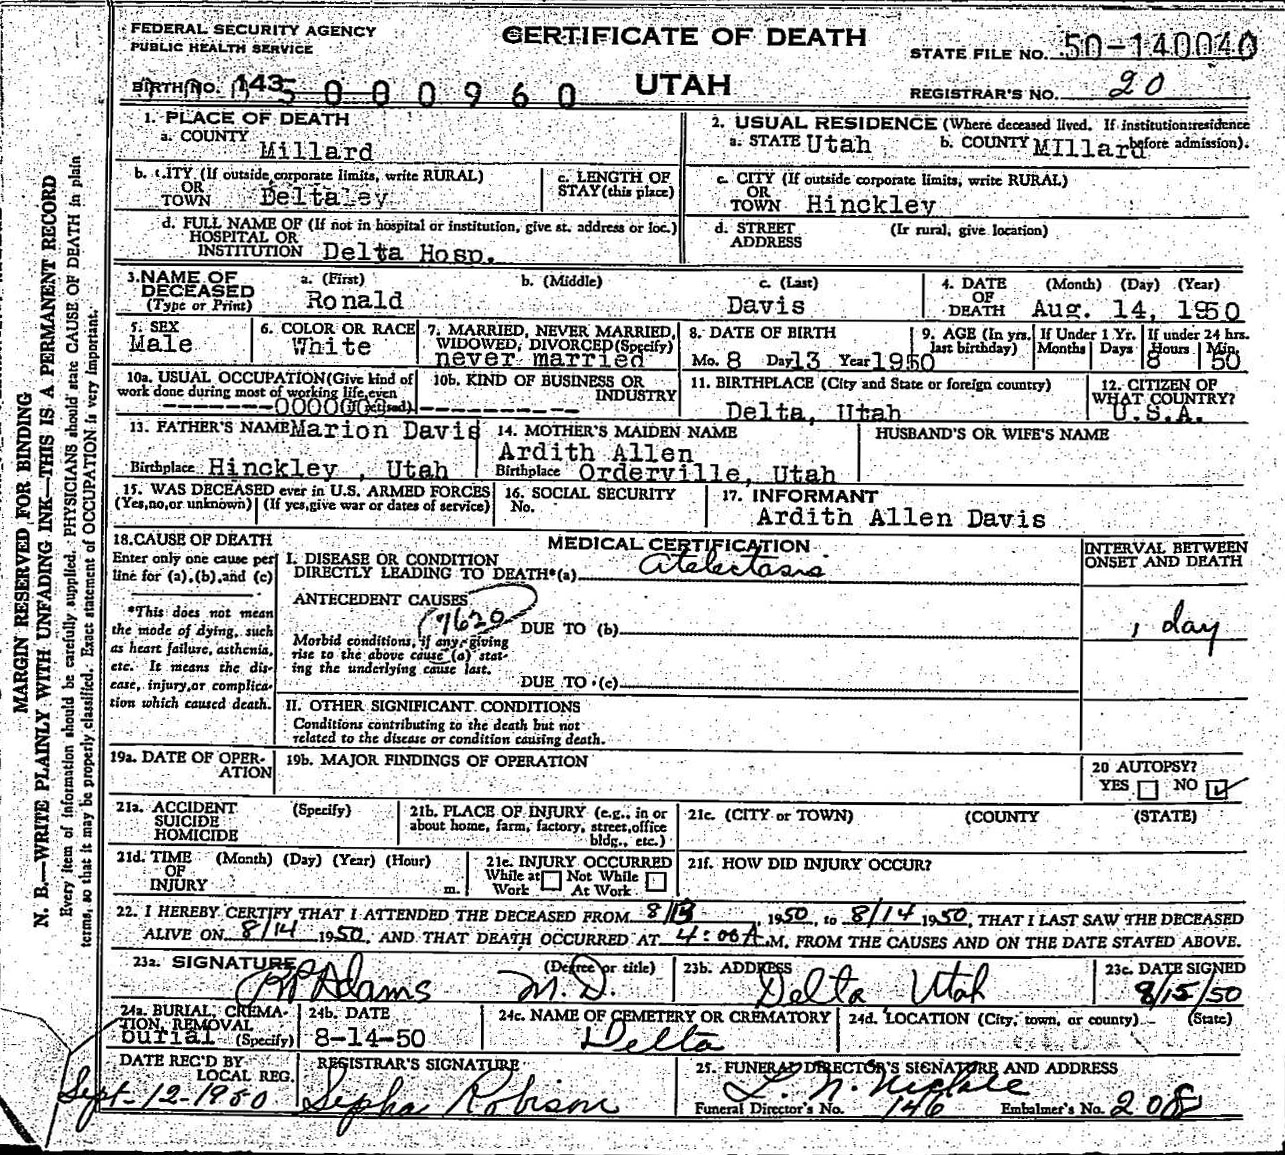 FEDERAL SECURITY AGENCY
PUBLIC HEALTH SERVICE
CERTIFICATE OF DEATH
UTAH
STATE FILE NO. 50-140040
BIRTH NO. 143 5 0 0 0 9 6 0
REGISTRAR'S NO. 20
1. PLACE OF DEATH
a. COUNTY
Millard
2. USUAL RESIDENCE (Where deceased lived. If institution:residence before admission).
a. STATE Utah b. COUNTY MIllard
b. CITY (If outside corporate limits, write RURAL)
OR
TOWN Delta
c. LENGTH OF
STAY (this place)
c. CITY (If outside corporate limits, write RURAL)
OR
TOWN Hinckley
d. FULL NAME OF (If not in hospital or institution, give st. address or loc.)
HOSPITAL OR
INSTITUTION Delta Hosp.
d. STREET (If rural, give location)
ADDRESS
3. NAME OF DECEASED (Type or Print)
a. (First) b. (Middle) c. (Last)
Ronald Davis
4. DATE OF DEATH (Month) (Day) (Year)
Aug. 14, 1950
5. SEX
Male
6. COLOR OR RACE
White
7. MARRIED, NEVER MARRIED, WIDOWED, DIVORCED (Specify)
never married
8. DATE OF BIRTH
Mo. 8 Day 13 Year 1950
9. AGE (In yrs. last birthday) If Under 1 Yr. Months Days If under 24 hrs. Hours Min.
8 50
10a. USUAL OCCUPATION (Give kind of work done during most of working life, even if retired)
10b. KIND OF BUSINESS OR INDUSTRY
11. BIRTHPLACE (City and State or foreign country)
Delta, Utah
12. CITIZEN OF WHAT COUNTRY?
U.S.A.
13. FATHER'S NAME Marion Davis
Birthplace Hinckley , Utah
14. MOTHER'S MAIDEN NAME
Ardith Allen
Birthplace Orderville, Utah
HUSBAND'S OR WIFE'S NAME
15. WAS DECEASED ever in U.S. ARMED FORCES
(Yes, no, or unknown) (If yes, give war or dates of service)
16. SOCIAL SECURITY
No.
17. INFORMANT
Ardith Allen Davis
18. CAUSE OF DEATH
Enter only one cause per line for (a), (b), and (c)
*This does not mean the mode of dying, such as heart failure, asthenia, etc. It means the disease, injury, or complication which caused death.
MEDICAL CERTIFICATION
I. DISEASE OR CONDITION
DIRECTLY LEADING TO DEATH*(a) Atelectasis
ANTECEDENT CAUSES
7620
Morbid conditions, if any, giving rise to the above cause (a) stating the underlying cause last.
DUE TO (b)
DUE TO (c)
INTERVAL BETWEEN ONSET AND DEATH
1 day
II. OTHER SIGNIFICANT CONDITIONS
Conditions contributing to the death but not
related to the disease or condition causing death.
19a. DATE OF OPERATION
19b. MAJOR FINDINGS OF OPERATION
20 AUTOPSY?
YES NO
21a. ACCIDENT (Specify)
SUICIDE
HOMICIDE
21b. PLACE OF INJURY (e.g., in or about home, farm, factory, street, office bldg., etc.)
21c. (CITY or TOWN) (COUNTY (STATE)
21d. TIME OF INJURY (Month) (Day) (Year) (Hour) m.
21e. INJURY OCCURRED
While at Work Not While At Work
21f. HOW DID INJURY OCCUR?
22. I HEREBY CERTIFY THAT I ATTENDED THE DECEASED FROM 8/13, 1950, to 8/14 1950, THAT I LAST SAW THE DECEASED
ALIVE ON 8/14 1950, AND THAT DEATH OCCURRED AT 4:00A.M, FROM THE CAUSES AND ON THE DATE STATED ABOVE.
23a. SIGNATURE (Degree or title)
Adams M.D.
23b. ADDRESS
Delta Utah
23c. DATE SIGNED
8/15/50
24a. BURIAL, CREMATION, REMOVAL (Specify)
burial
24b. DATE
8-14-50
24c. NAME OF CEMETERY OR CREMATORY
Delta
24d. LOCATION (City, town, or county) (State)
DATE REC'D BY LOCAL REG.
Sept-12-1950
REGISTRAR'S SIGNATURE
Sepha Robison
25. FUNERAL DIRECTOR'S SIGNATURE AND ADDRESS
L. N. Nickle
Funeral Director's No. 146 Embalmer's No. 208
MARGIN RESERVED FOR BINDING
N. B.—WRITE PLAINLY WITH UNFADING INK—THIS IS A PERMANENT RECORD
Every item of information should be carefully supplied. PHYSICIANS should state CAUSE OF DEATH in plain
terms, so that it may be properly classified. Exact statement of OCCUPATION is very important.